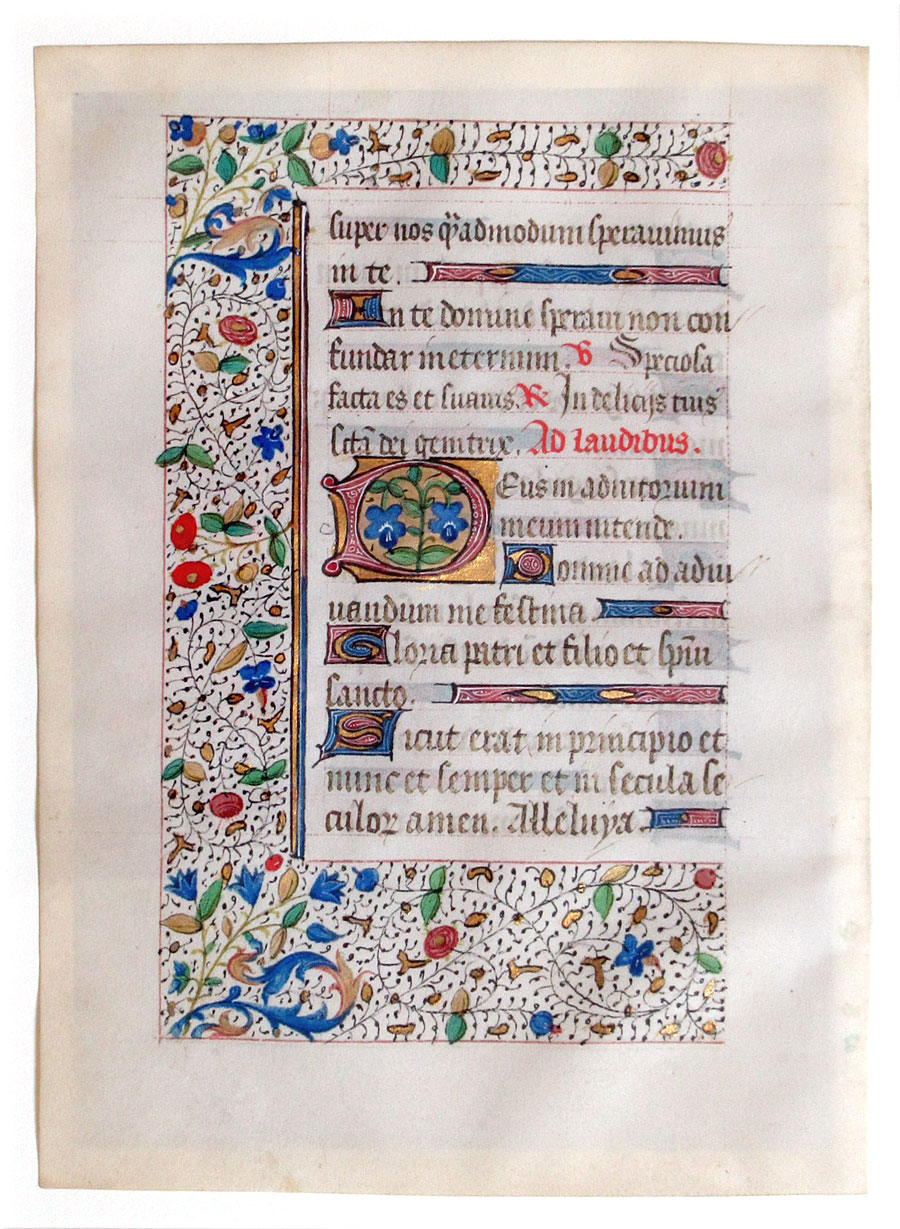 super nos q̃admodum sperauimus
in te.
In te domine speraui non con
fundar in eternum. V Speciosa
facta es et suauis. R In delicijs tuis
sctã dei genitrix. Ad laudibus.
Deus in adiutorium
meum intende.
Domine ad adiu
uandum me festina
Gloria patri et filio et spũi
sancto.
Sicut erat in principio et
nunc et semper et in secula se
culoꝝ amen. Alleluya.